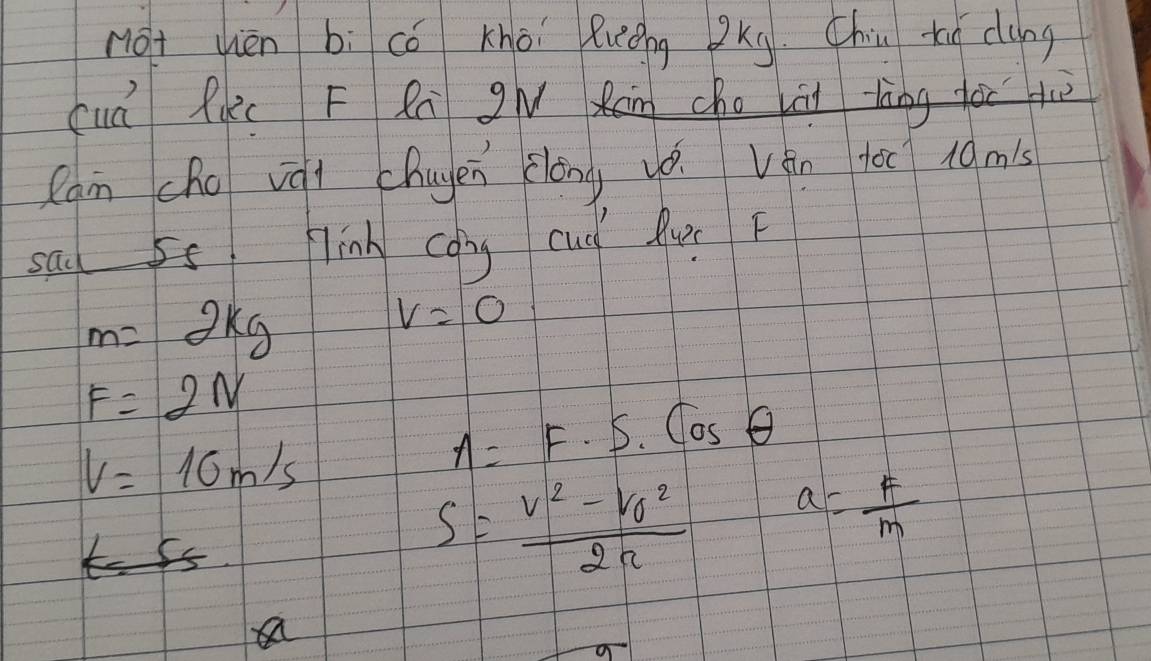 Một viên bi có khối lượng 2kg. Chịu tác dụng
của lực F là 2N làm cho vật tăng tốc từ
làm cho vật chuyển động với vận tốc 10m/s
sau 5s. Tính công của lực F
m= 2kg V=0
F= 2N
V= 10m/s A= F.S.Cos θ
t= 5s S= \frac{v^2 - v_0^2}{2a} a= \frac{F}{m}
a